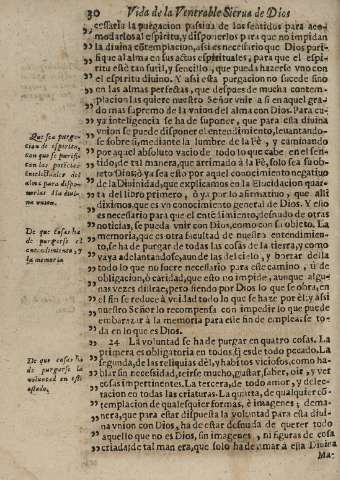 30 Vida de la Venerable Sierua de Dios
cessaria la purgacion passiua de los sentidos para aco-
modarlos al espiritu, y disponerlos para que no impidan
la diuina cõtemplacion, assi es necessario que Dios puri-
fique al alma en sus actus espirituales, para que el espi-
ritu estè tan sutil, y sencillo, que pueda hazerse vno con
el espiritu diuino. Y assi esta purgacion no sucede sino
en las almas perfectas, que despues de mucha contem-
placion las quiere nuestro Señor vnir a si en aquel gra-
do mas supremo de la vnion del alma con Dios. Para cu-
ya inteligencia se ha de suponer, que para esta diuina
vnion se puede disponer el entendimiento, leuantando-
se sobre si, mediante la lumbre de la Fè, y caminando
por aquel absoluto vacio de todo lo que cabe en el sen-
tido, de tal manera, que arrimado à la Fè, solo sea su ob-
jeto Dios; ò ya sea esto por aquel conocimiento negatiuo
de la Diuinidad, que explicamos en la Elucidacion quar-
ta del libro primero, ò ya por lo afirmatiuo, y que alli
diximos, que es vn conocimiento general de Dios. Y esto
es necessario para que el entẽdimiento, desnudo de otras
noticias, se pueda vnir con Dios, como con su objeto. La
memoria, que es otra facultad de nuestro entendimien-
to, se ha de purgar de todas las cosas de la tierra, y como
vaya adelantandose, aun de las del cielo, y borrar della
todo lo que no fuere necessario para este camino, ù de
obligacion, ò caridad, que esto no impide, aunque algu-
nas vezes distrae, pero siendo por Dios lo que se obra, en
el fin se reduce à vtilidad todo lo que se haze por èl: y assi
nuestro Señor lo recompensa con impedir lo que puede
embaraçar à la memoria para este fin de emplearse to-
da en lo que es Dios.
24 La voluntad se ha de purgar en quatro cosas. La
primera es obligatoria en todos, q̃ es de todo pecado. La
segunda, de las reliquias dèl, y habitos viciosos, como ha-
blar sin necessidad, reirse mucho, gustar, saber, oir, y ver
cosas impertinentes. La tercera, de todo amor, y delec-
racion en todas las criaturas. La quarta, de qualquier cõ-
templacion de qualesquier formas, è imagenes; de ma-
nera, que para estar dispuesta la voluntad para esta diui-
na vnion con Dios, ha de estar desnuda de querer todo
aquello que no es Dios, sin imagenes, ni figuras de cosa
criada; de tal manera, que solo ha de amar à esta Diuina
Ma-
Que sea purga-
cion de espiritu,
con que se purifi-
can las potencias
intelectuales del
alma para dispo-
nerlas a la diui-
na vnion.
De que cosas ha
de purgarse el
entendimiento, y
la memoria
De que cosas ha
de purgarse la
voluntad en este
estado.